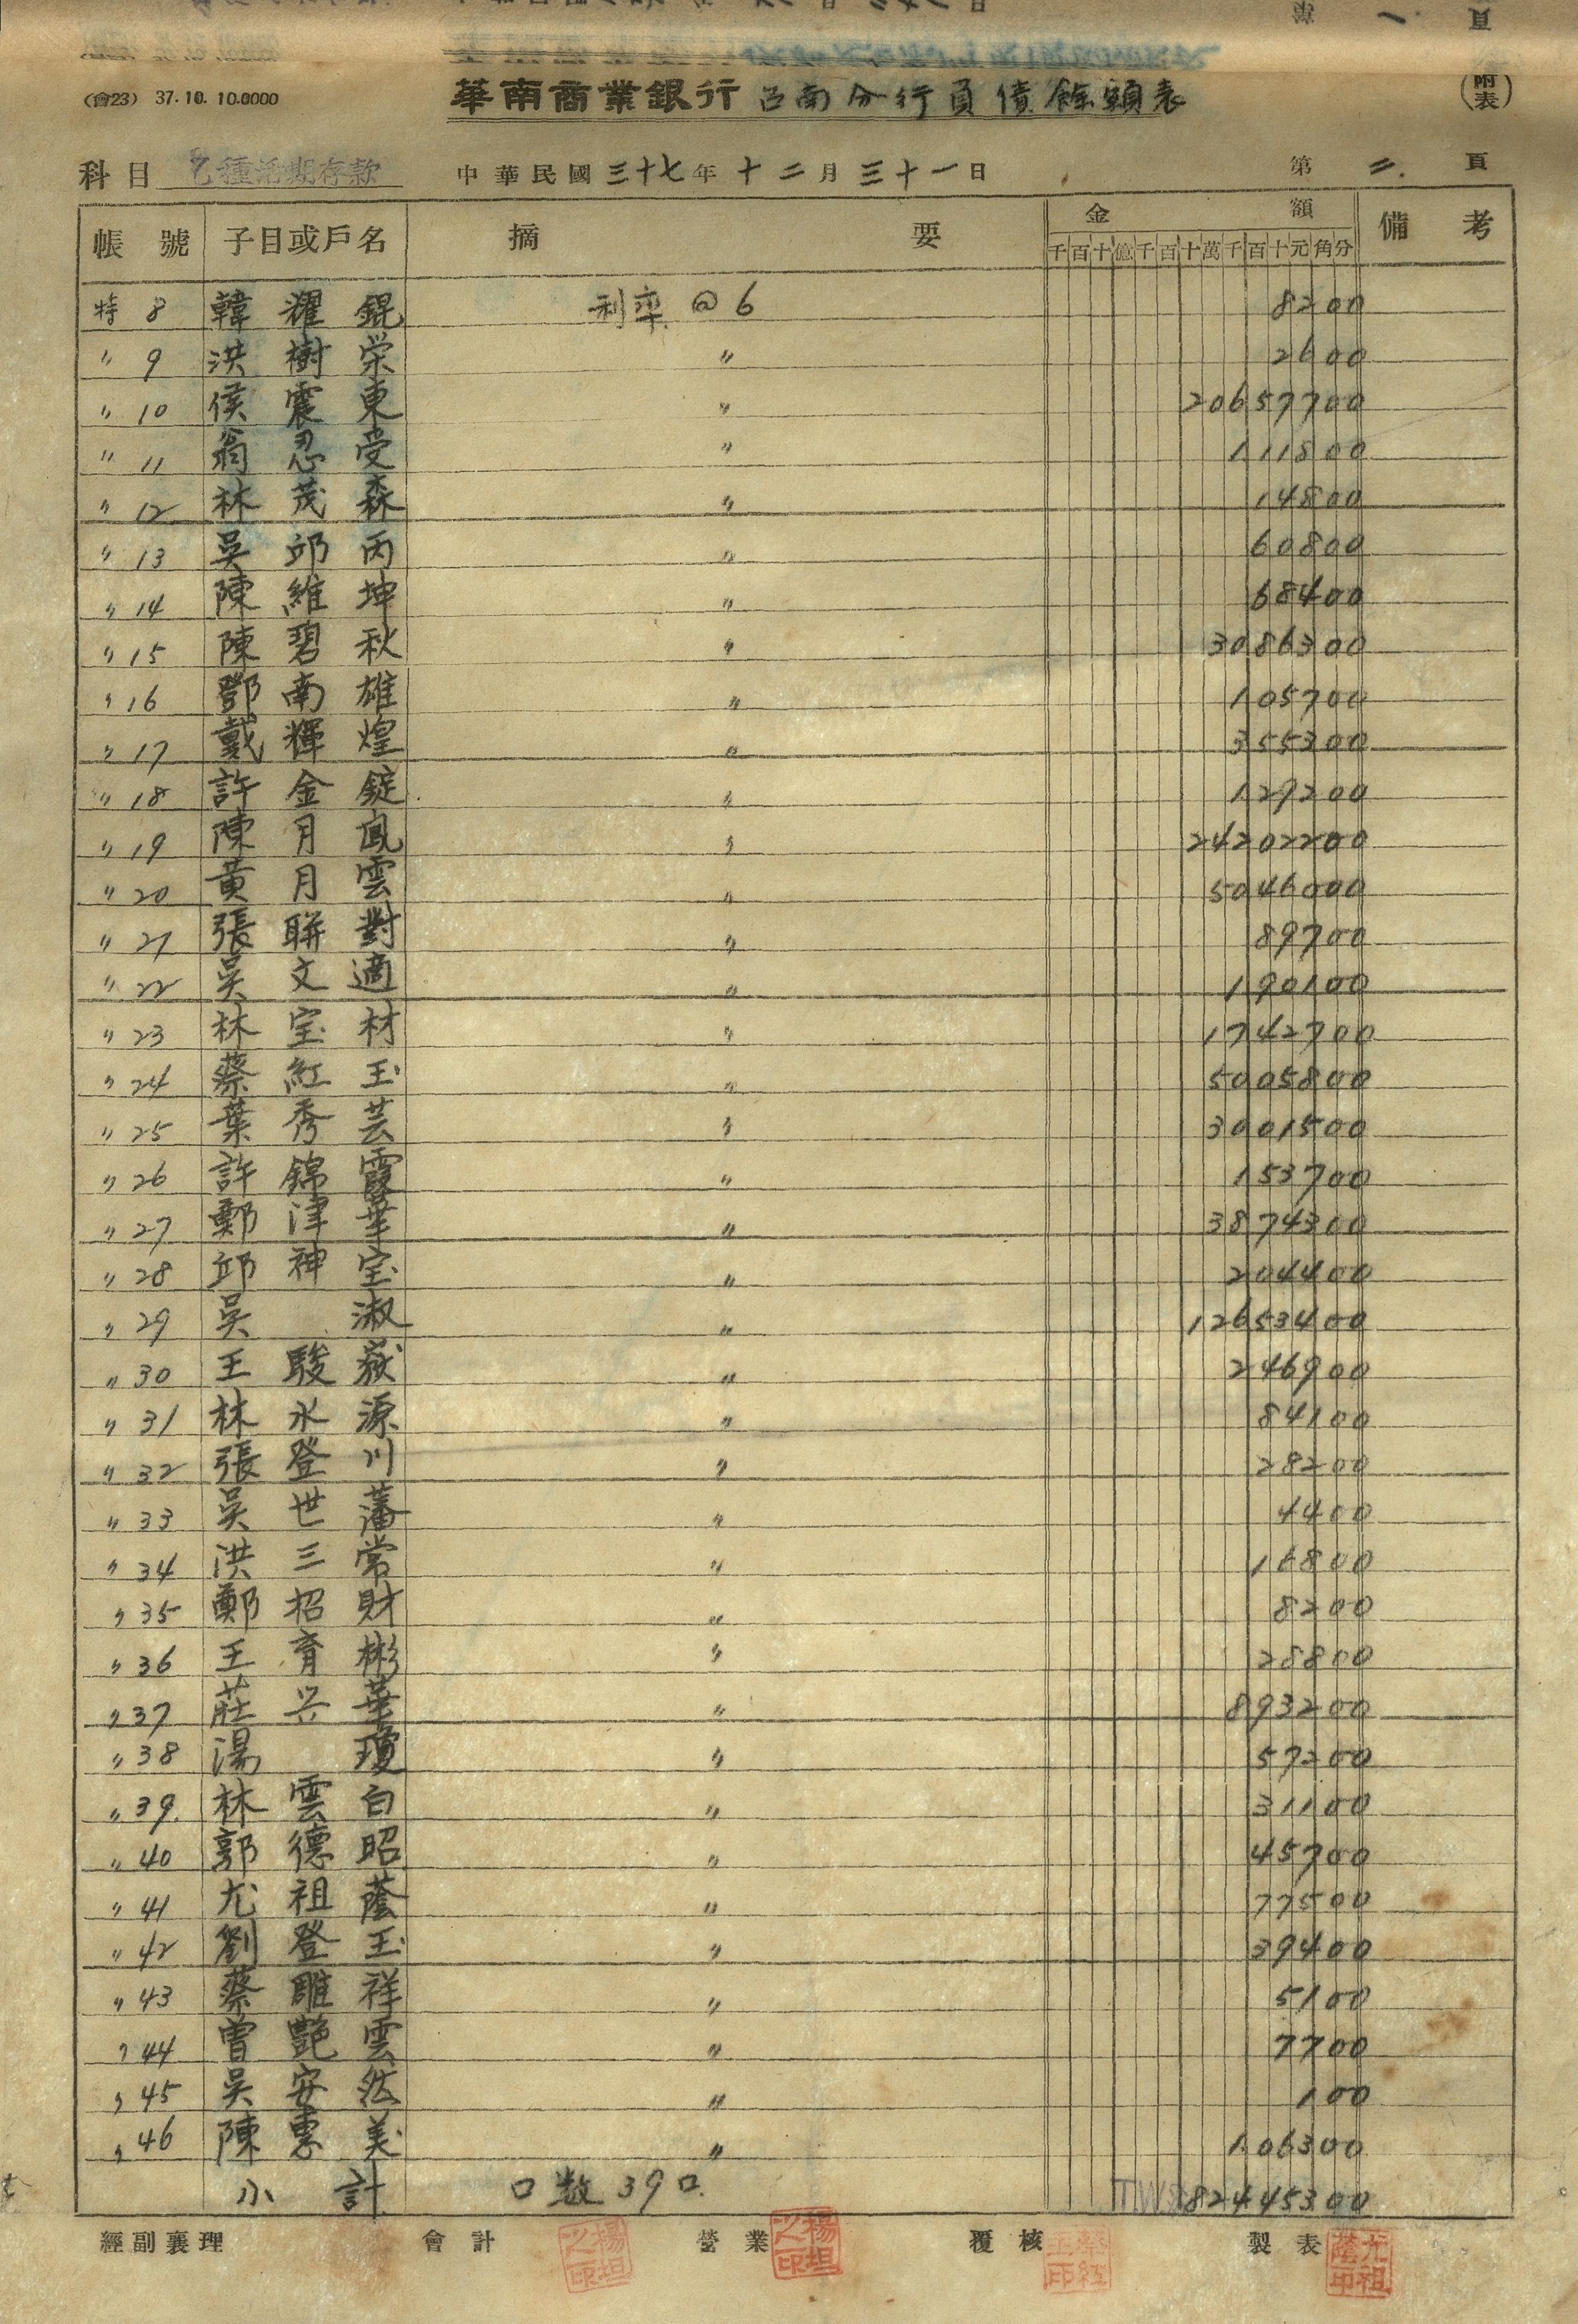 (會23) 37.10.10.0000
華南商業銀行 台南分行負債餘額表
(附表)
科目 乙種活期存款 中華民國三十七年十二月三十一日 第二.頁
帳號 子目或戶名 摘要 金額 備考
千百十億千百十萬千百十元角分
特 8 韓耀錕 利率 @ 6 8200
〃 9 洪樹栄 〃 2600
〃 10 侯震東 〃 20657700
〃 11 翁忍受 〃 111800
〃 12 林茂森 〃 14800
〃 13 吳邱丙 〃 60800
〃 14 陳維坤 〃 68400
〃 15 陳碧秋 〃 3086300
〃 16 鄧南雄 〃 105700
〃 17 戴輝煌 〃 355300
〃 18 許金錠 〃 129200
〃 19 陳月鳳 〃 24202200
〃 20 黃月雲 〃 5046000
〃 21 張聯對 〃 89700
〃 22 吳文適 〃 190100
〃 23 林宝材 〃 1742700
〃 24 蔡紅玉 〃 5005800
〃 25 葉秀芸 〃 3001500
〃 26 許錦霞 〃 153700
〃 27 鄭津華 〃 3874300
〃 28 邱神宝 〃 204400
〃 29 吳淑 〃 12653400
〃 30 王駿嶽 〃 246900
〃 31 林永源 〃 84100
〃 32 張登川 〃 28200
〃 33 吳世藩 〃 4400
〃 34 洪三常 〃 16800
〃 35 鄭招財 〃 8200
〃 36 王育彬 〃 28800
〃 37 莊兴華 〃 893200
〃 38 湯瓊 〃 57200
〃 39. 林雲白 〃 31100
〃 40 郭德昭 〃 45700
〃 41 尤祖蔭 〃 77500
〃 42 劉登玉 〃 39400
〃 43 蔡雕祥 〃 5100
〃 44 曾艷雲 〃 7700
〃 45 吳安然 〃 100
〃 46 陳惠美 〃 106300
小計 口数39口. TW$82445300
經副襄理 會計 營業 覆核 製表
楊坦之印 楊坦之印 尤祖蔭印